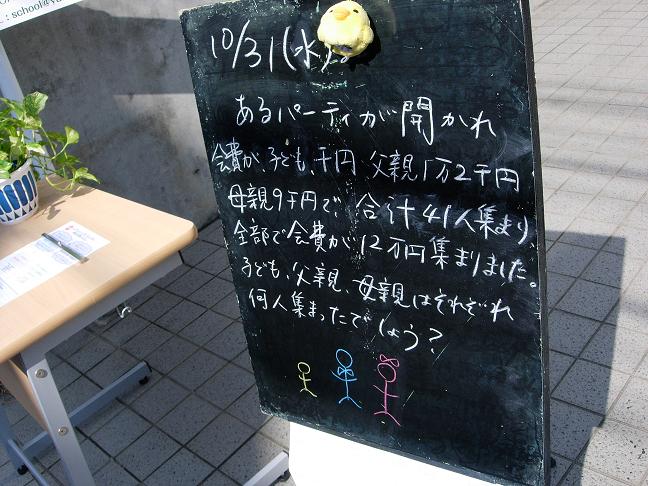 : school@y
10/31(水)。
あるパーティが開かれ
会費が、子ども、千円、父親1万2千円
母親9千円で、合計41人集まり
全部で会費が12万円集まりました。
子ども、父親、母親はそれぞれ
何人集まったでしょう?